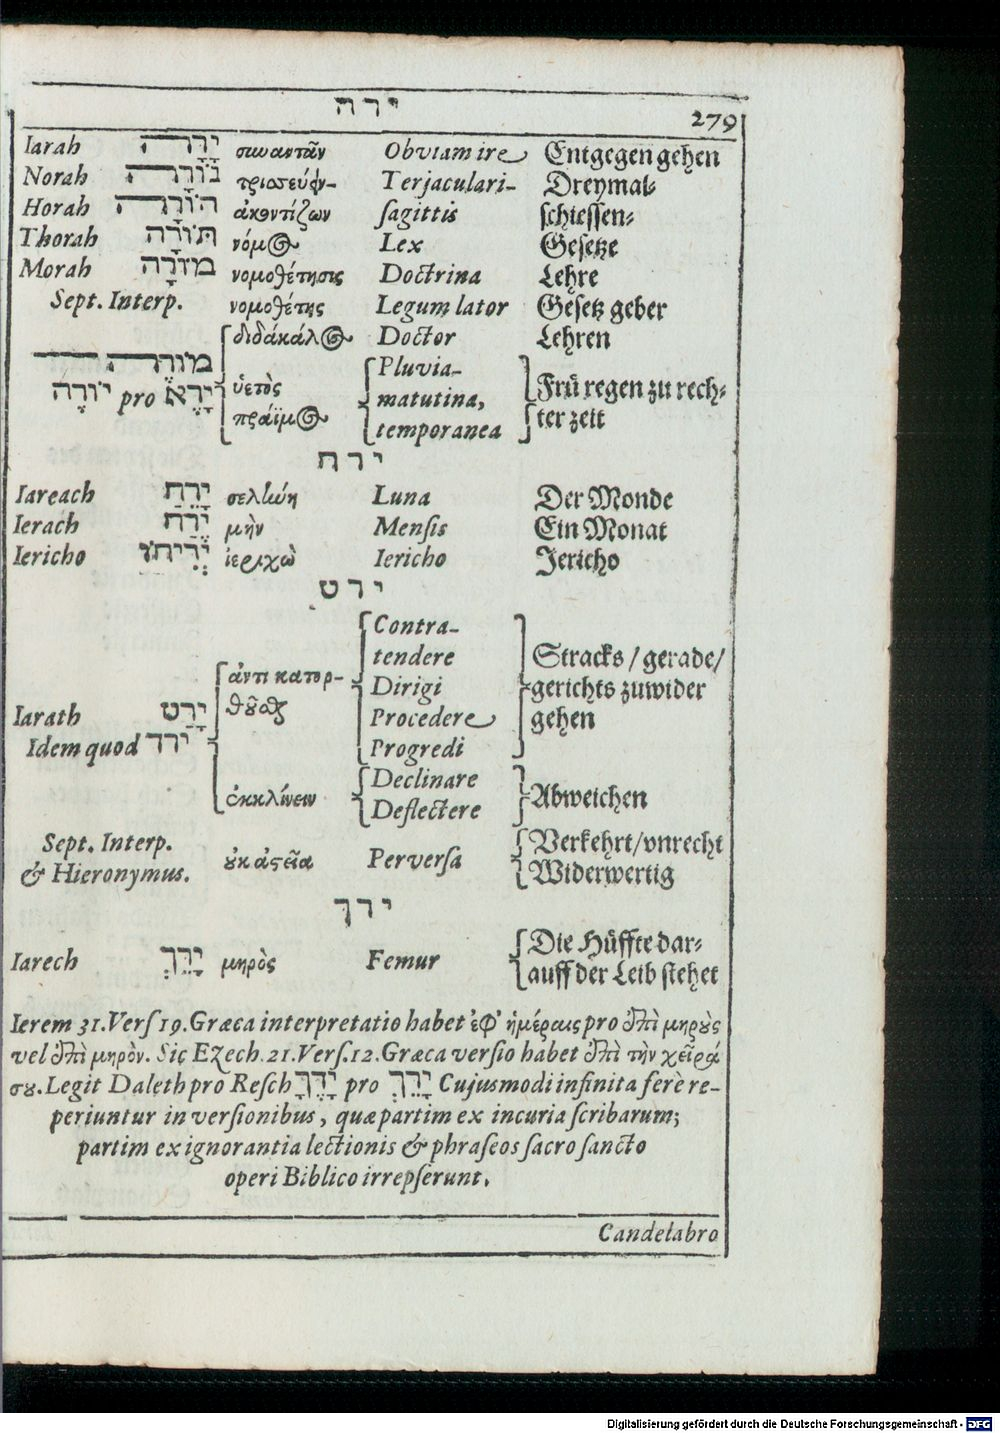 ירה
279
Iarah יָרָה συναντᾶν Obviam ire Entgegen gehen
Norah נוֹרָה τρισεύειν- Terjaculari- Dreymal-
Horah הוֹרָה ἀκοντίζων sagittis schiessen-
Thorah תּוֹרָה νόμος Lex Gesetze
Morah מוֹרָה νομοθέτησις Doctrina Lehre
Sept. Interp. νομοθέτης Legum lator Gesetz geber
διδάκαλος Doctor Lehren
מוֹרֶה Pluvia-
יוֹרֶה pro יָרֶא ὑετὸς matutina, Frü regen zu rech-
πραΐμος temporanea ter zeit
ירח
Iareach יָרֵחַ σελήνη Luna Der Monde
Ierach יֶרַח μὴν Mensis Ein Monat
Iericho יְרִיחוֹ ἰεριχὼ Iericho Jericho
ירט
Contra-
tendere Stracks / gerade/
ἀντι κατορ- Dirigi gerichts zuwider
Iarath יָרַט θοῦσθαι Procedere gehen
Idem quod ירד Progredi
Declinare
ἐκκλίνειν Deflectere Abweichen
Sept. Interp. Verkehrt/vnrecht
& Hieronymus. οὐκ ἀστεῖα Perversa Widerwertig
ירך
Die Hüffte dar-
Iarech יָרֵךְ μηρὸς Femur auff der Leib stehet
Ierem 31. Vers 19. Græca interpretatio habet ἐφ' ἡμέραις pro ἐπὶ μηροὺς
vel ἐπὶ μηρὸν. Sic Ezech. 21. Vers. 12. Græca versio habet ἐπὶ τὴν χεῖρά
σου. Legit Daleth pro Resch יָדֶךָ pro יָרֵךְ Cujusmodi infinita ferè re-
periuntur in versionibus, quæ partim ex incuria scribarum;
partim ex ignorantia lectionis & phraseos sacro sancto
operi Biblico irrepserunt.
Candelabro
Digitalisierung gefördert durch die Deutsche Forschungsgemeinschaft - DFG